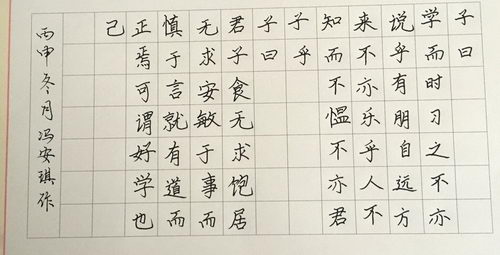 子曰
学而时习之不亦
说乎有朋自远方
来不亦乐乎人不
知而不愠不亦君
子乎
子曰
君子食无求饱居
无求安敏于事而
慎于言就有道而
正焉可谓好学也
己
丙申冬月冯安琪作